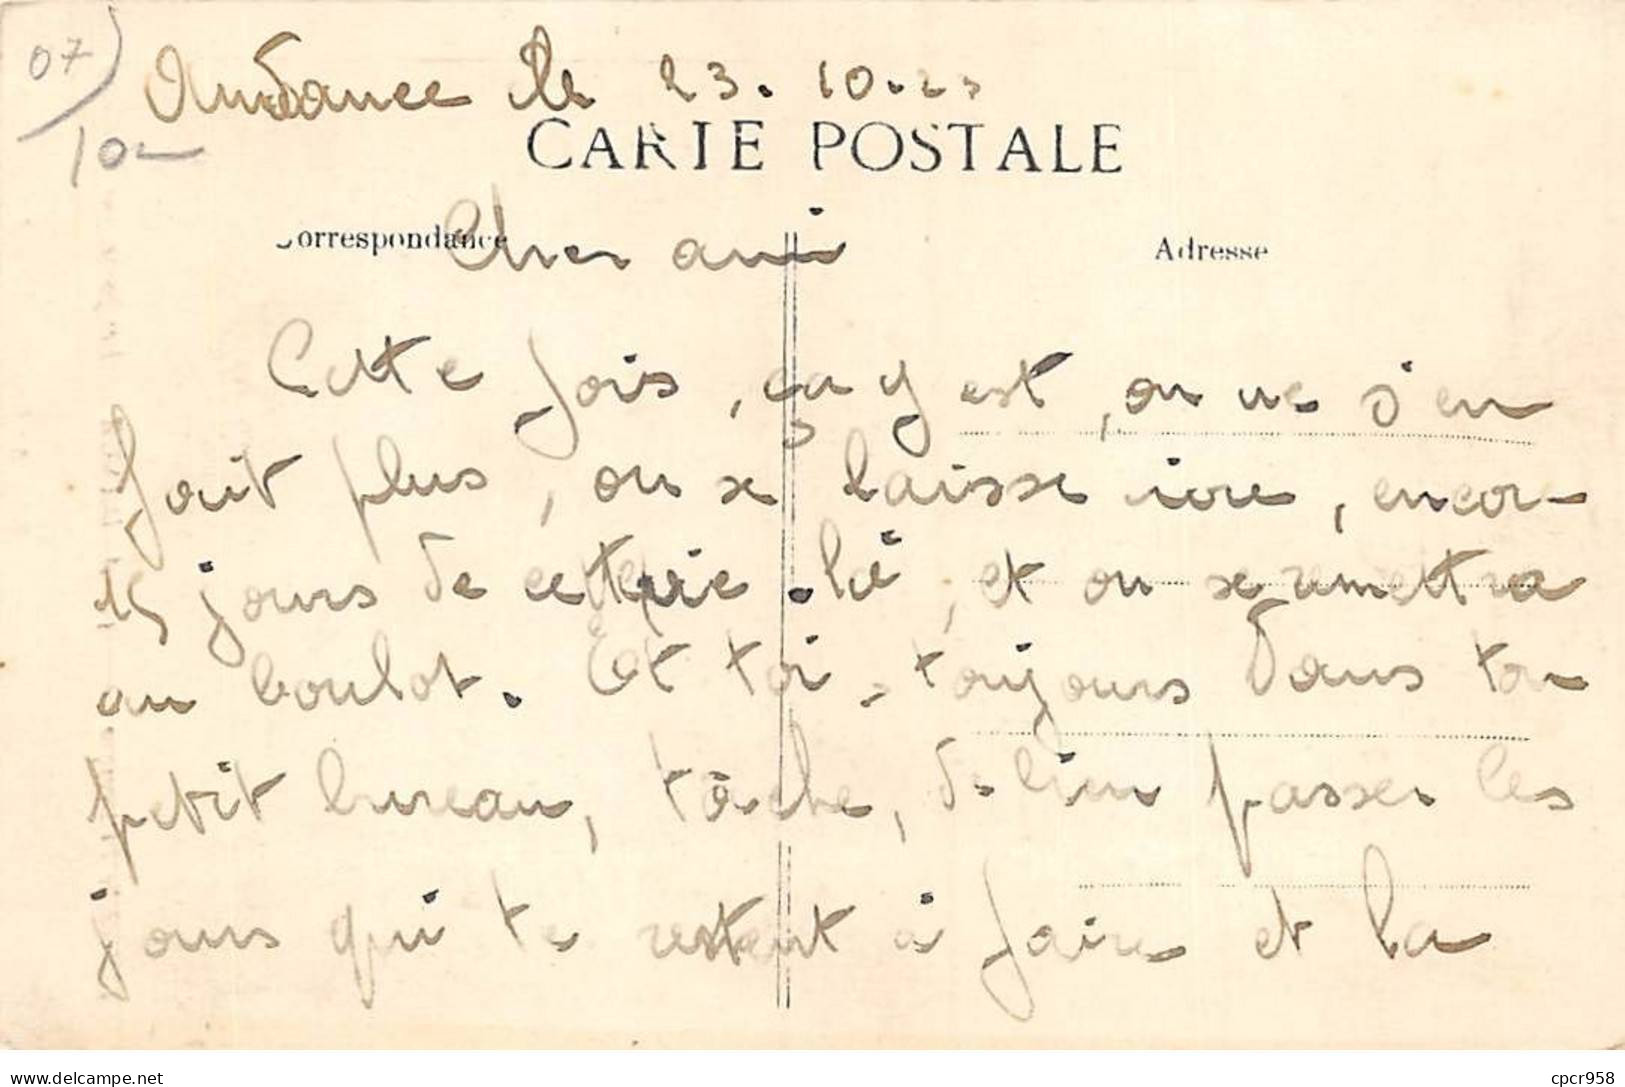 07
10
Andance le 23.10.
CARTE POSTALE
Correspondance
Adresse
Cher ami
Cette fois, ça y est, on ne s'en
fait plus, on se laisse vivre, encore
15 jours de cette vie-là, et on se remettra
au boulot. Et toi, toujours dans ton
petit bureau, tâche, de bien passer les
jours qui te restent à faire et la
delcampe.net
cpcr958